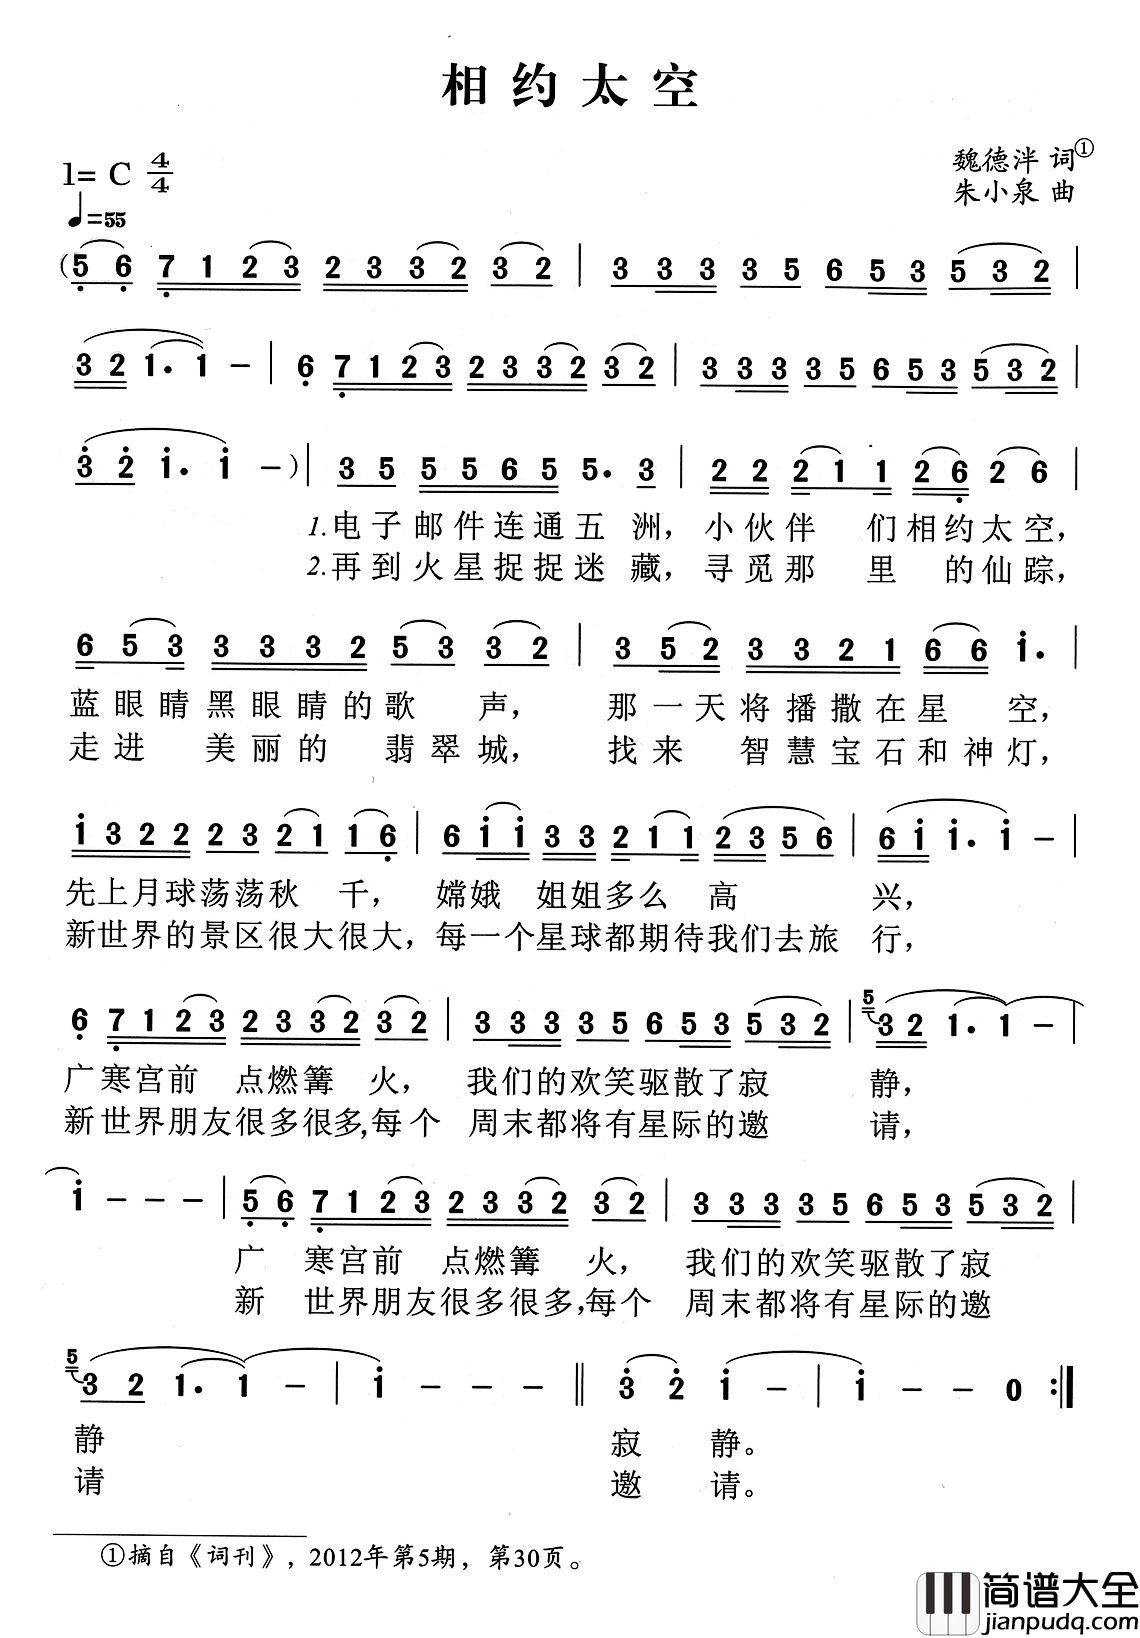 相约太空
1= C 4/4
魏德泮 词①
♩=55
朱小泉 曲
(5 6 7 1 2 3 2 3 3 2 3 2 | 3 3 3 3 5 6 5 3 5 3 2 |
3 2 1· 1 - | 6 7 1 2 3 2 3 3 2 3 2 | 3 3 3 3 5 6 5 3 5 3 2 |
3 2 1· 1 -) | 3 5 5 5 6 5 5· 3 | 2 2 2 1 1 2 6 2 6 |
1.电子邮件连通五 洲，小伙伴 们相约太空，
2.再到火星捉捉迷 藏，寻觅那 里 的仙踪，
6 5 3 3 3 3 2 5 3 3 2 | 3 5 2 3 3 2 1 6 6 1· |
蓝眼睛黑眼睛的歌 声， 那一天将播撒在星 空，
走进 美丽的 翡翠城， 找来 智慧宝石和神灯，
1 3 2 2 2 3 2 1 1 6 | 6 1 1 3 3 2 1 1 2 3 5 6 | 6 1 1· 1 - |
先上月球荡荡秋 千， 嫦娥 姐姐多么 高 兴，
新世界的景区很大很大，每一个星球都期待我们去旅 行，
6 7 1 2 3 2 3 3 2 3 2 | 3 3 3 3 5 6 5 3 5 3 2 | 5 3 2 1· 1 - |
广寒宫前 点燃篝 火， 我们的欢笑驱散了寂 静，
新世界朋友很多很多，每个 周末都将有星际的邀 请，
1 - - - | 5 6 7 1 2 3 2 3 3 2 3 2 | 3 3 3 3 5 6 5 3 5 3 2 |
广 寒宫前 点燃篝 火， 我们的欢笑驱散了寂
新 世界朋友很多很多，每个 周末都将有星际的邀
5 3 2 1· 1 - | 1 - - - ‖ 3 2 1 - | 1 - - 0 :‖
静 寂 静。
请 邀 请。
①摘自《词刊》，2012年第5期，第30页。
简谱大全
jianpudq.com